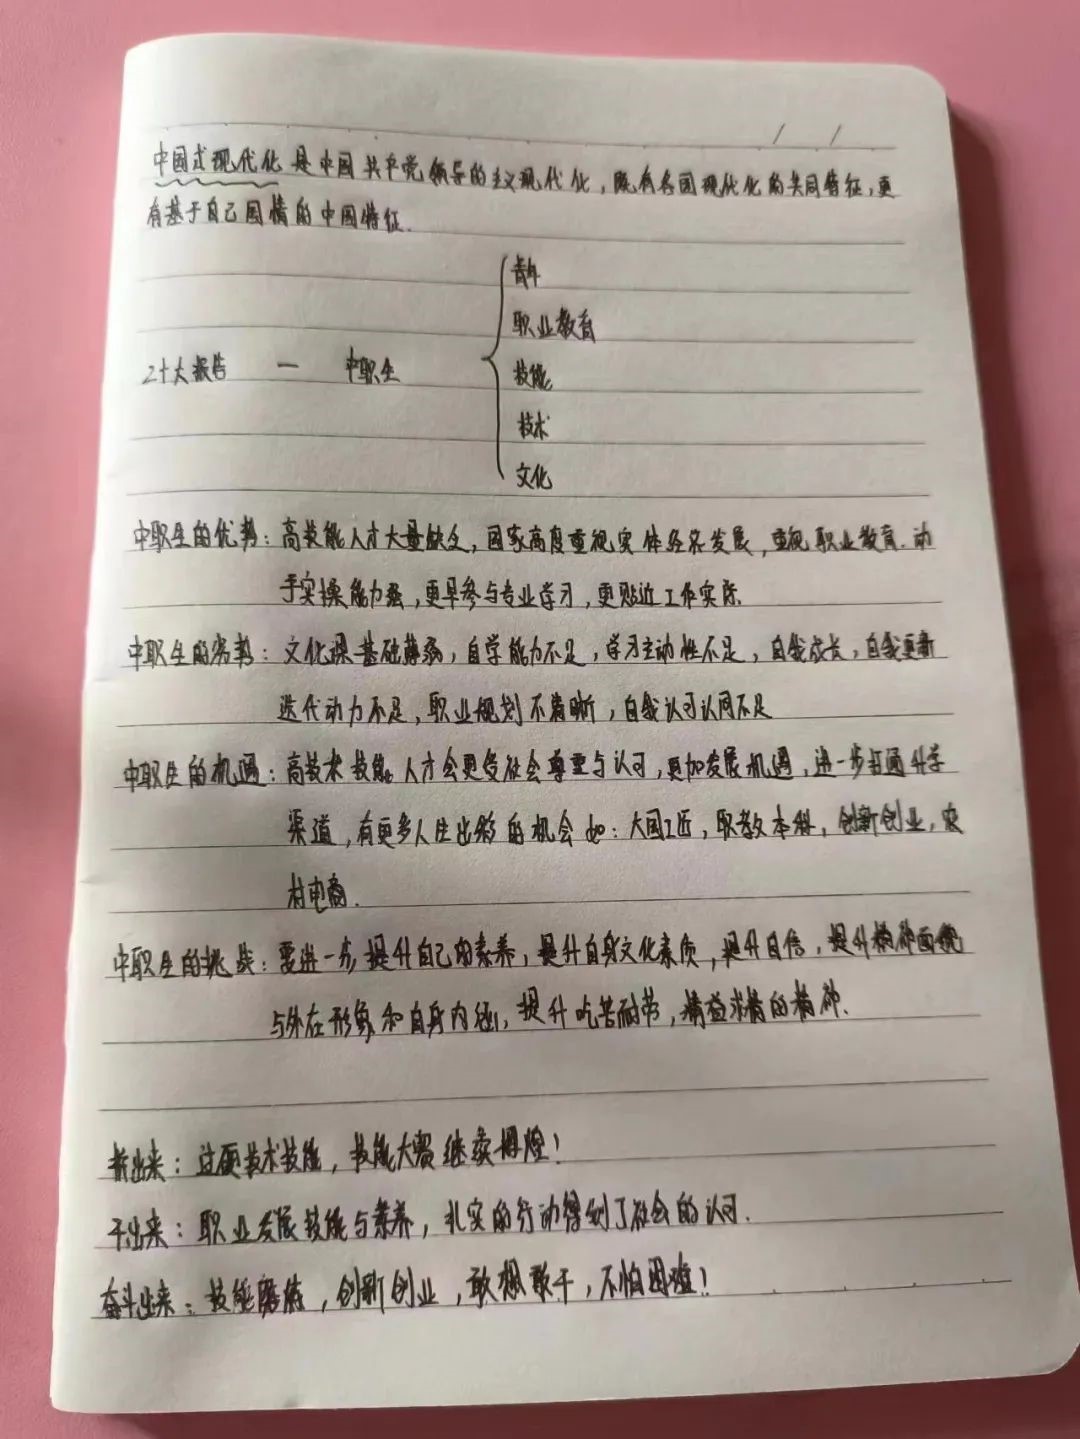 中国式现代化是中国共产党领导的主义现代化，既有各国现代化的共同特征，更
有基于自己国情的中国特征.
青年
职业教育
二十大报告 — 中职生
技能
技术
文化
中职生的优势：高技能人才大量缺乏，国家高度重视实体经济发展，重视职业教育.动
手实操能力强，更早参与专业学习，更贴近工作实际.
中职生的劣势：文化课基础薄弱，自学能力不足，学习主动性不足，自我成长，自我更新
迭代动力不足，职业规划不清晰，自我认可认同不足
中职生的机遇：高技术技能人才会更受社会尊重与认可，更加发展机遇，进一步打通升学
渠道，有更多人生出彩的机会 do：大国工匠，职教本科，创新创业，农
村电商.
中职生的挑战：要进一步提升自己的素养，提升自身文化素质，提升自信，提升精神面貌
与外在形象和自身内涵，提升吃苦耐劳，精益求精的精神.
拼出来：过硬技术技能，技能大赛继续辉煌！
干出来：职业发展技能与素养，扎实的行动得到了社会的认可.
奋斗出来：技能磨炼，创新创业，敢想敢干，不怕困难！